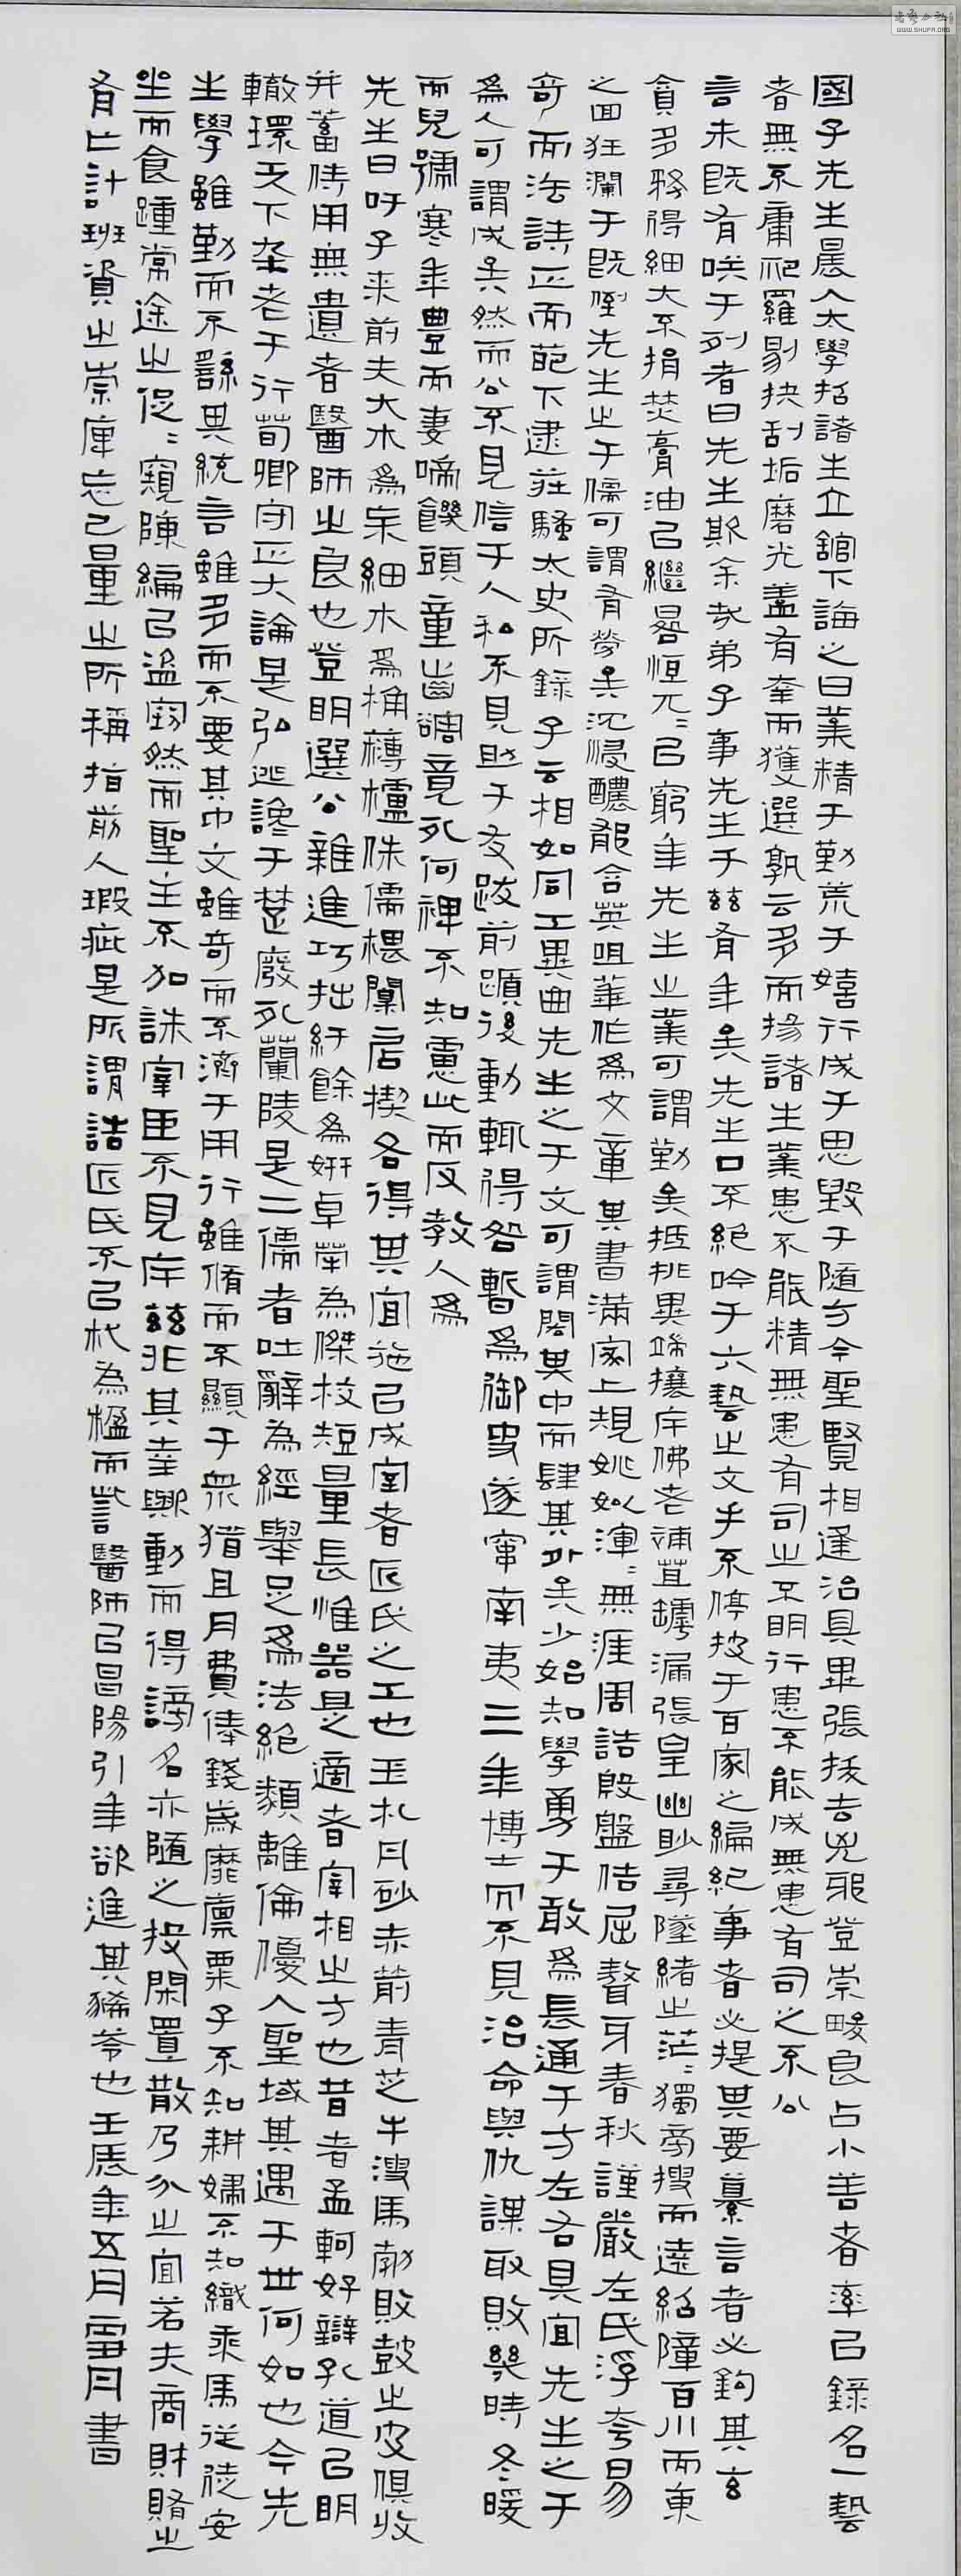 國子先生晨入太學招諸生立館下誨之曰業精于勤荒于嬉行成于思毀于隨方今聖賢相逢治具畢張拔去兇邪登崇畯良占小善者率㠯錄名一藝
者無不庸爬羅剔抉刮垢磨光蓋有幸而獲選孰云多而揚諸生業患不能精無患有司之不明行患不能成無患有司之不公
言未既有咲于列者曰先生欺余哉弟子事先生于茲有年矣先生口不絕吟于六藝之文手不停披于百家之編紀事者必提其要纂言者必鉤其玄
貪多務得細大不捐焚膏油㠯繼晷恒兀〻㠯窮年先生之業可謂勤矣抵排異端攘斥佛老補苴罅漏張皇幽眇尋墜緒之茫〻獨旁搜而遠紹障百川而東
之回狂瀾于既倒先生之于儒可謂有勞矣沉浸醲郁含英咀華作為文章其書滿家上規姚姒渾〻無涯周誥殷盤佶屈聱牙春秋謹嚴左氏浮夸易
奇而法詩正而葩下逮莊騷太史所錄子云相如同工異曲先生之于文可謂閎其中而肆其外矣少始知學勇于敢為長通于方左右具宜先生之于
為人可謂成矣然而公不見信于人私不見助于友跋前躓後動輒得咎暫為御史遂竄南夷三年博士冗不見治命與仇謀取敗幾時冬暖
而兒號寒年豐而妻啼饑頭童齒豁竟死何裨不知慮此而反教人為
先生曰吁子來前夫大木為杗細木為桷欂櫨侏儒椳闑扂楔各得其宜施㠯成室者匠氏之工也玉札丹砂赤箭青芝牛溲馬勃敗鼓之皮俱收
并蓄待用無遺者醫師之良也登明選公雜進巧拙紆餘為妍卓犖為傑校短量長惟器是適者宰相之方也昔者孟軻好辯孔道㠯明
轍環天下卒老于行荀卿守正大論是弘逃讒于楚廢死蘭陵是二儒者吐辭為經舉足為法絕類離倫優入聖域其遇于世何如也今先
生學雖勤而不繇其統言雖多而不要其中文雖奇而不濟于用行雖脩而不顯于眾猶且月費俸錢歲靡廩粟子不知耕婦不知織乘馬從徒安
坐而食踵常途之促〻窺陳編㠯盜竊然而聖主不加誅宰臣不見斥茲非其幸歟動而得謗名亦隨之投閑置散乃分之宜若夫商財賄之
有亡計班資之崇庳忘己量之所稱指前人瑕疵是所謂詰匠氏不㠯杙為楹而訾醫師㠯昌陽引年欲進其豨苓也壬辰年五月雪月書
WWW.SHUFA.ORG